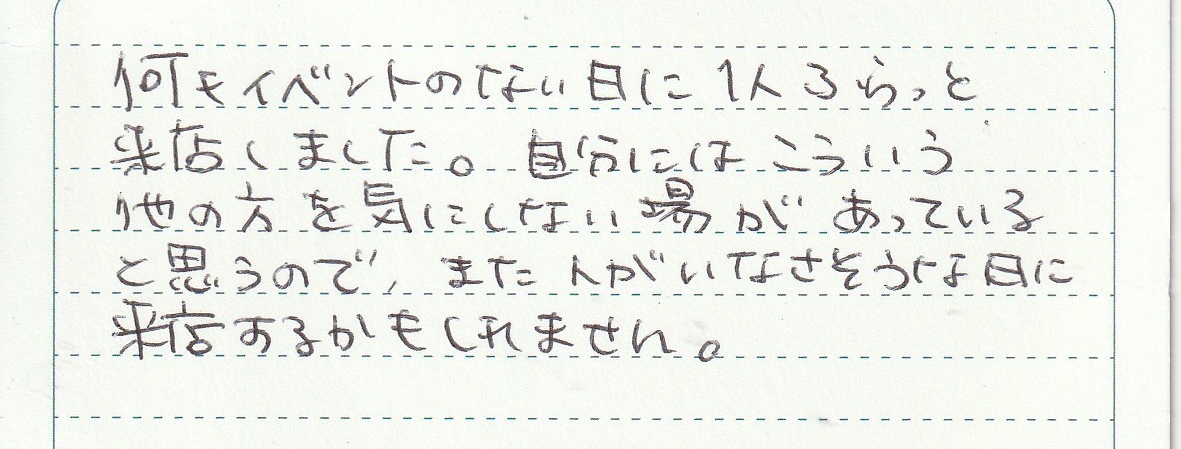 何もイベントのない日に1人ふらっと
来店しました。自分にはこういう
他の方を気にしない場があっている
と思うので、また人がいなさそうな日に
来店するかもしれません。